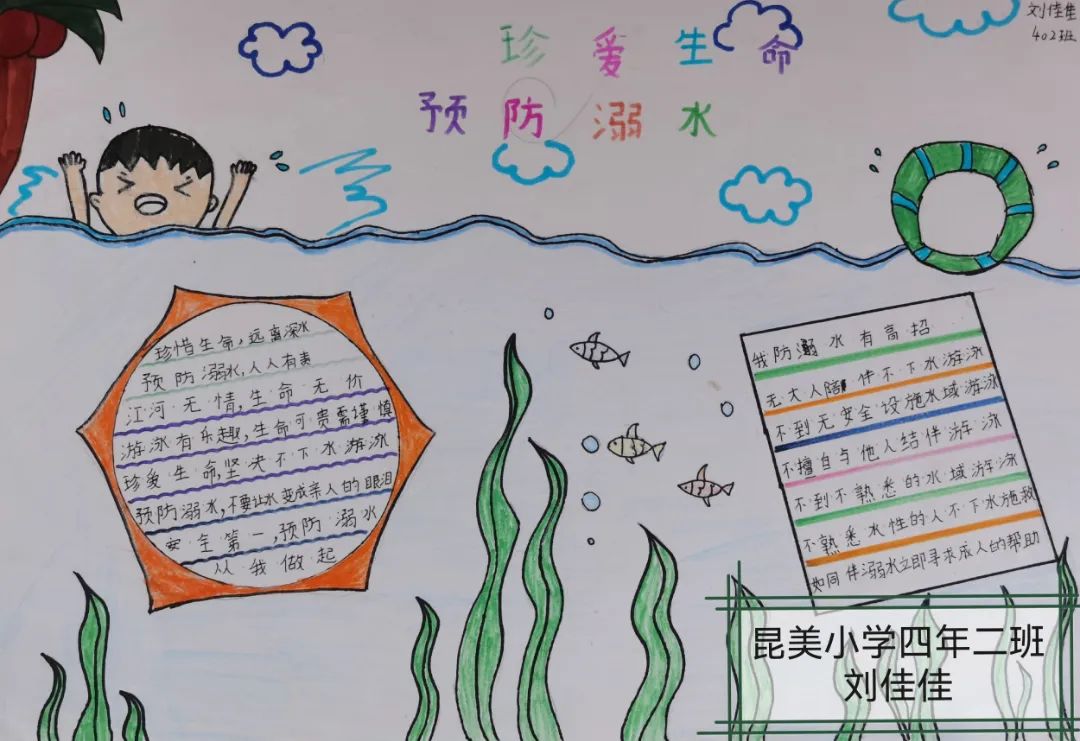 珍爱生命
预防溺水
刘佳佳
402班
珍惜生命,远离深水
预防溺水,人人有责
江河无情,生命无价
游泳有乐趣,生命可贵需谨慎
珍爱生命,坚决不下水游泳
预防溺水,不要让水变成亲人的眼泪
安全第一,预防溺水
从我做起
我防溺水有高招
无大人陪伴不下水游泳
不到无安全设施水域游泳
不擅自与他人结伴游泳
不到不熟悉的水域游泳
不熟悉水性的人不下水施救
如同伴溺水立即寻求成人的帮助
昆美小学四年二班
刘佳佳